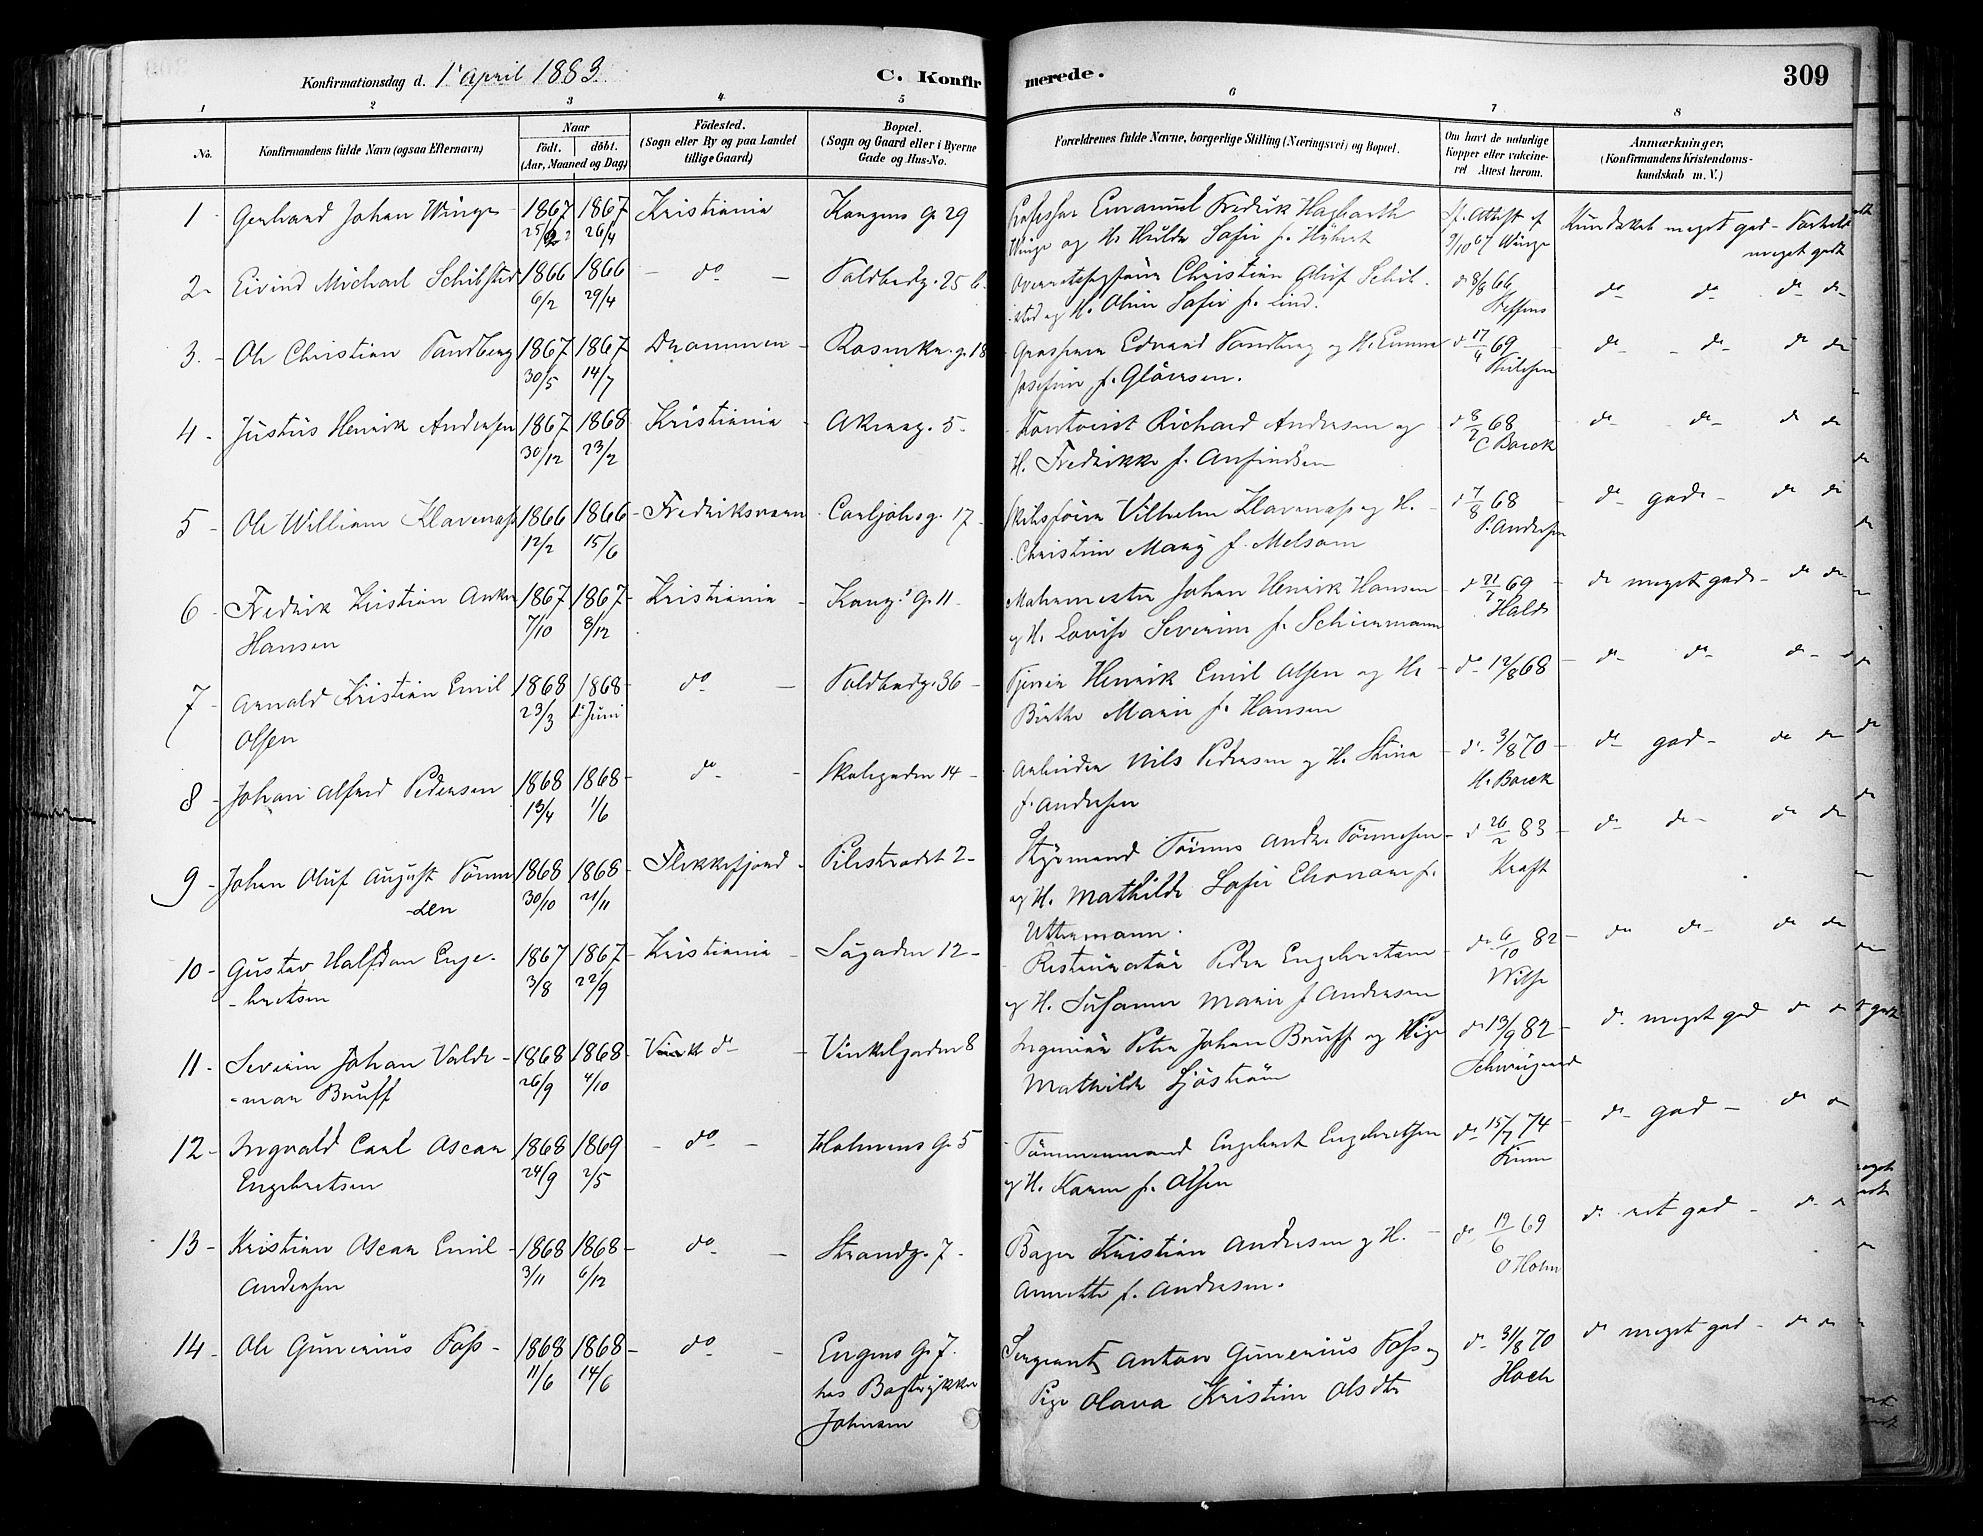 Konfirmationsdag d. 1' April 1883.
C. Konfirmerede.
309
1 2 3 4 5 6 7 8
No.
Konfirmandens fulde Navn (ogsaa Efternavn)
Naar
födt. döbt.
(Aar, Maaned og Dag)
Födested.
(Sogn eller By og paa Landet
tillige Gaard)
Bopæl.
(Sogn og Gaard eller i Byerne
Gade og Hus-No.
Forældrenes fulde Navne, borgerlige Stilling (Næringsvei) og Bopæl.
Om havt de naturlige
Kopper eller vakcine-
ret Attest herom.
Anmærkninger.
(Konfirmandens Kristendoms-
kundskab m. V.)
1 - Gerhard Johan Winge - 1867 1867 Kristiania Kongens G. 29 Professor Emanuel Fredrik Hagbarth Attest af Kundskab meget god - Forhold
26/4 Winge og H. Hulda Sofie f. 9/10 67 Winge meget godt
2 - Eivind Michael Schibsted 1866 1866 - do - Voldbadg. 25 b. Christian Oluf Schib- do 8/8 66 do do do do
6/2 29/4 sted og H. Oline Sofie f. Lind. Steffens
3. - Ole Christian Sandberg 1867 1867 Drammen - Rosenkr. g. 18 Edvard Sandberg og H. Emma do 17/4 69 do do do do
30/5 14/7 Josefine f. Gläersen.
4 - Justus Henrik Andersen 1867 1868 Kristiania - Akersg. 5 - Kontorist Richard Andersen og do 8/2 68 do do do do
30/12 23/2 H. Fredrikke f. Anfindsen C Boeck
5 - Ole William Klavenæss 1866 1866 - Fredriksværn Carljohsg. 17 - Skibsförer Vilhelm Klavenæss og H. do 7/8 68 - do god - do do
12/2 15/6 Christine Mary f. Melsom P. Andersen
6 - Fredrik Kristian Anker 1867 1867 - Kristiania - Kong. G. 11 - Malermester Johan Henrik Hansen do 21/7 69 - do meget god - do do
Hansen 7/10 8/12 og H. Lovise Severine f. Schiermann Hald
7 - Arnold Kristian Emil 1868 1868 - do - Voldbadg. 36 - Henrik Emil Olsen og H. - do 12/8 68 - do do do
Olsen 23/3 1' Juni Birthe Marie f. Hansen
8 - Johan Alfred Pedersen 1868 1868 - do - Skolegaden 14 - Arbeider Nils Pedersen og H. Stina - do 3/8 70 - do god - do do
13/4 1/6 f. Andersen H. Boeck
9 - Johan Oluf August Tönne 1868 1868 Flekkefjord - Pilestrædet 2 - Styrmand Tönnes Andr. Tönnesen - do 26/2 83 - do do do do
-sen 30/10 21/11 og H. Mathilde Sofie Elenore f. Kraft
Uttermann.
10 - Gustav Halfdan Enge- 1867 1867 - Kristiania - Söгaden 12 - Restauratör Peder Engebretsen - do 6/10 82 - do do do do
- bretsen 3/8 22/9 og H. Susanne Marie f Andersen Wilse
11 - Severin Johan Valde - 1868 1868 - do - Vinkelgaden 8 Ingeniör Peter Johan Bruff og Pige do 13/9 82 - do meget god do do
- mar Bruff 26/9 4/10 Mathilde Sjöström Schweigaard
12 - Ingvald Carl Oscar 1868 1869 - do - Holmens G. 5 Tömmermand Engebret Engebretsen do 15/7 74 - do god - do do
Engebretsen 24/9 2/5 og H. Karen f. Olsen
13 - Kristian Oscar Emil - 1868 1868 - do - Strandg. 7 - Bager Kristian Andersen og H. - do 19/6 69 do ret god - do do
Andersen 3/11 6/12 Annette f. Andersen. O Holm
14 - Ole Gunerius Foss - 1868 1868 - do - Engens G. 7. Sergeant Anton Gunerius Foss og do 31/8 70 do meget god - do do
11/6 14/6 hos Bogtrykker Pige Olava Kristine Olsdtr Hoch
Johnsen